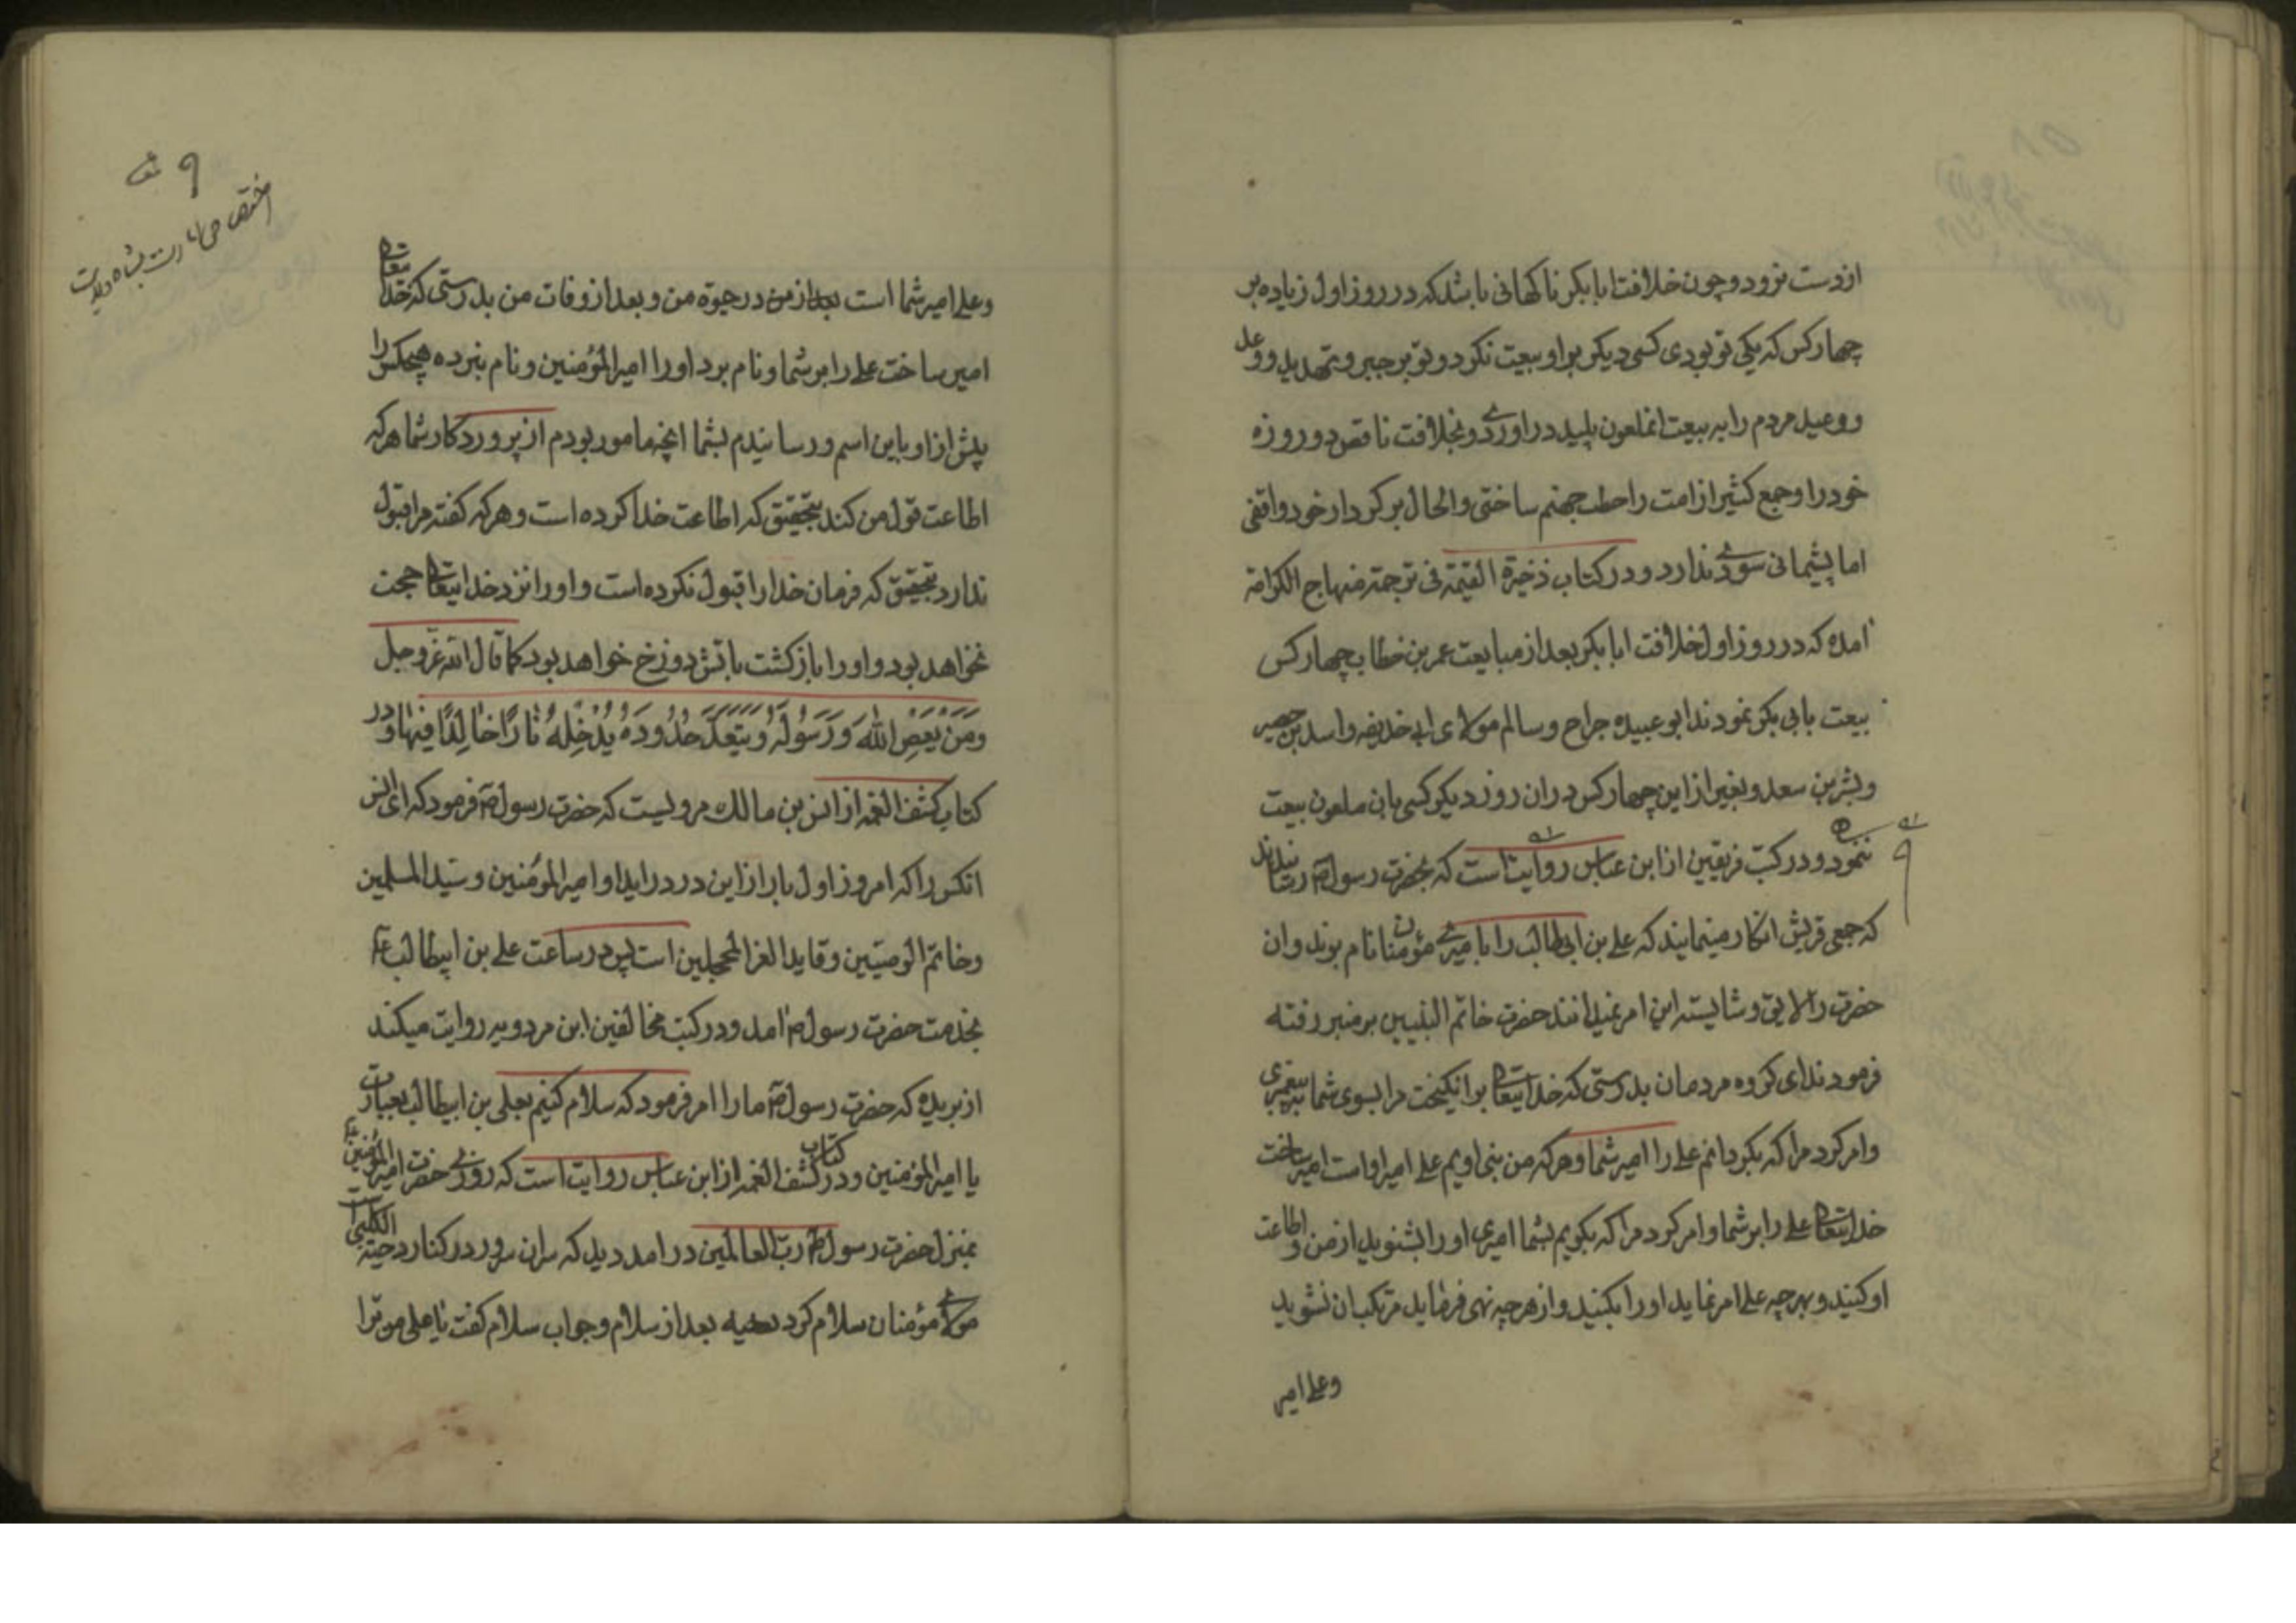 از دست نرود و چون خلافت ابا بکر ناکهانی باشد که در روز اول زیاده بر
چهار کس که یکی تو بودی کسی دیکر بر او بیعت نکرد و تو بر جبر و تهدید و وعد
و وعید مردم را به بیعت انملعون پلید در اوردی و بخلافت ناقص دو روزه
خود را و جمع کثیر از امت را حطب جهنم ساختی و الحال بر کردار خود واقفی
اما پشیمانی سودی ندارد و در کتاب ذخیرة القیمة فی ترجمة منهاج الکرامة
امده که در روز اول خلافت ابا بکر بعد از مبایعت عمر بن خطاب چهار کس
بیعت بابی بکر نمودند ابو عبیده جراح و سالم مولای ابی حذیفه و اسد بن حصیر
و بشر بن سعد و بغیر از این چهار کس در ان روز دیکر کسی بان ملعون بیعت
ننمود و در کتب فریقین از ابن عباس روایت است که بحضرت رسول ص رسانیدند
که جمعی قریش انکار مینمایند که علی بن ابیطالب را با میری مؤمنان نام برند و ان
حضرت را لایق و شایسته این امر نمیدانند حضرت خاتم النبیین بر منبر رفته
فرمودند ای کروه مردمان بدرستی که خدایتعالی بر انکیخت مرا بسوی شما به پیغمبری
و امر کرد مرا که بکردانم علی را امیر شما و هر که من نبی اویم علی امیر اوست امیر ساخت
خدایتعالی علی را بر شما و امر کرد مرا که بکویم بشما امیری او را بشنوید از من و اطاعت
او کنید و بهر چه علی امر نماید او را بکنید و از هر چه نهی فرماید مرتکب ان نشوید
وعلی امیر
و علی امیر شما است بعد از من در حیوة من و بعد از وفات من بدرستی که خدایتعالی
امیر ساخت علی را بر شما و نام برد او را امیر المؤمنین و نام نبرده هیچکس را
پیش از او باین اسم و رسانیدم بشما انچه مامور بودم از پروردکار شما هر که
اطاعت قول من کند بتحقیق که اطاعت خدا کرده است و هر که کفته مرا قبول
ندارد بتحقیق که فرمان خدا را قبول نکرده است و او را نزد خدایتعالی حجت
نخواهد بود و او را بازکشت باتش دوزخ خواهد بود کما قال الله عز وجل
وَمَنْ یَعْصِ اللّٰهَ وَرَسُولَهُ وَیَتَعَدَّ حُدُودَهُ یُدْخِلْهُ نَارًا خَالِدًا فِیهَا و در
کتاب کشف الغمه از انس بن مالک مرویست که حضرت رسول ص فرمود که ای انس
انکس را که امروز اول بار از این در در اید او امیر المؤمنین و سید المسلمین
و خاتم الوصیین و قاید الغر المحجلین است پس در ساعت علی بن ابیطالب ع
بخدمت حضرت رسول ص امد و در کتب مخالفین ابن مردویه روایت میکند
از بریده که حضرت رسول ص ما را امر فرمود که سلام کنیم بعلی بن ابیطالب بعبارت
یا امیر المؤمنین و در کتاب کشف الغمه از ابن عباس روایت است که روزی حضرت امیر المؤمنین ع
بمنزل حضرت رسول رب العالمین در امد دید که سر ان سرور در کنار دحیة الکلبی است
مولای مؤمنان سلام کرد دحیه بعد از سلام و جواب سلام کفت یا علی مر ترا